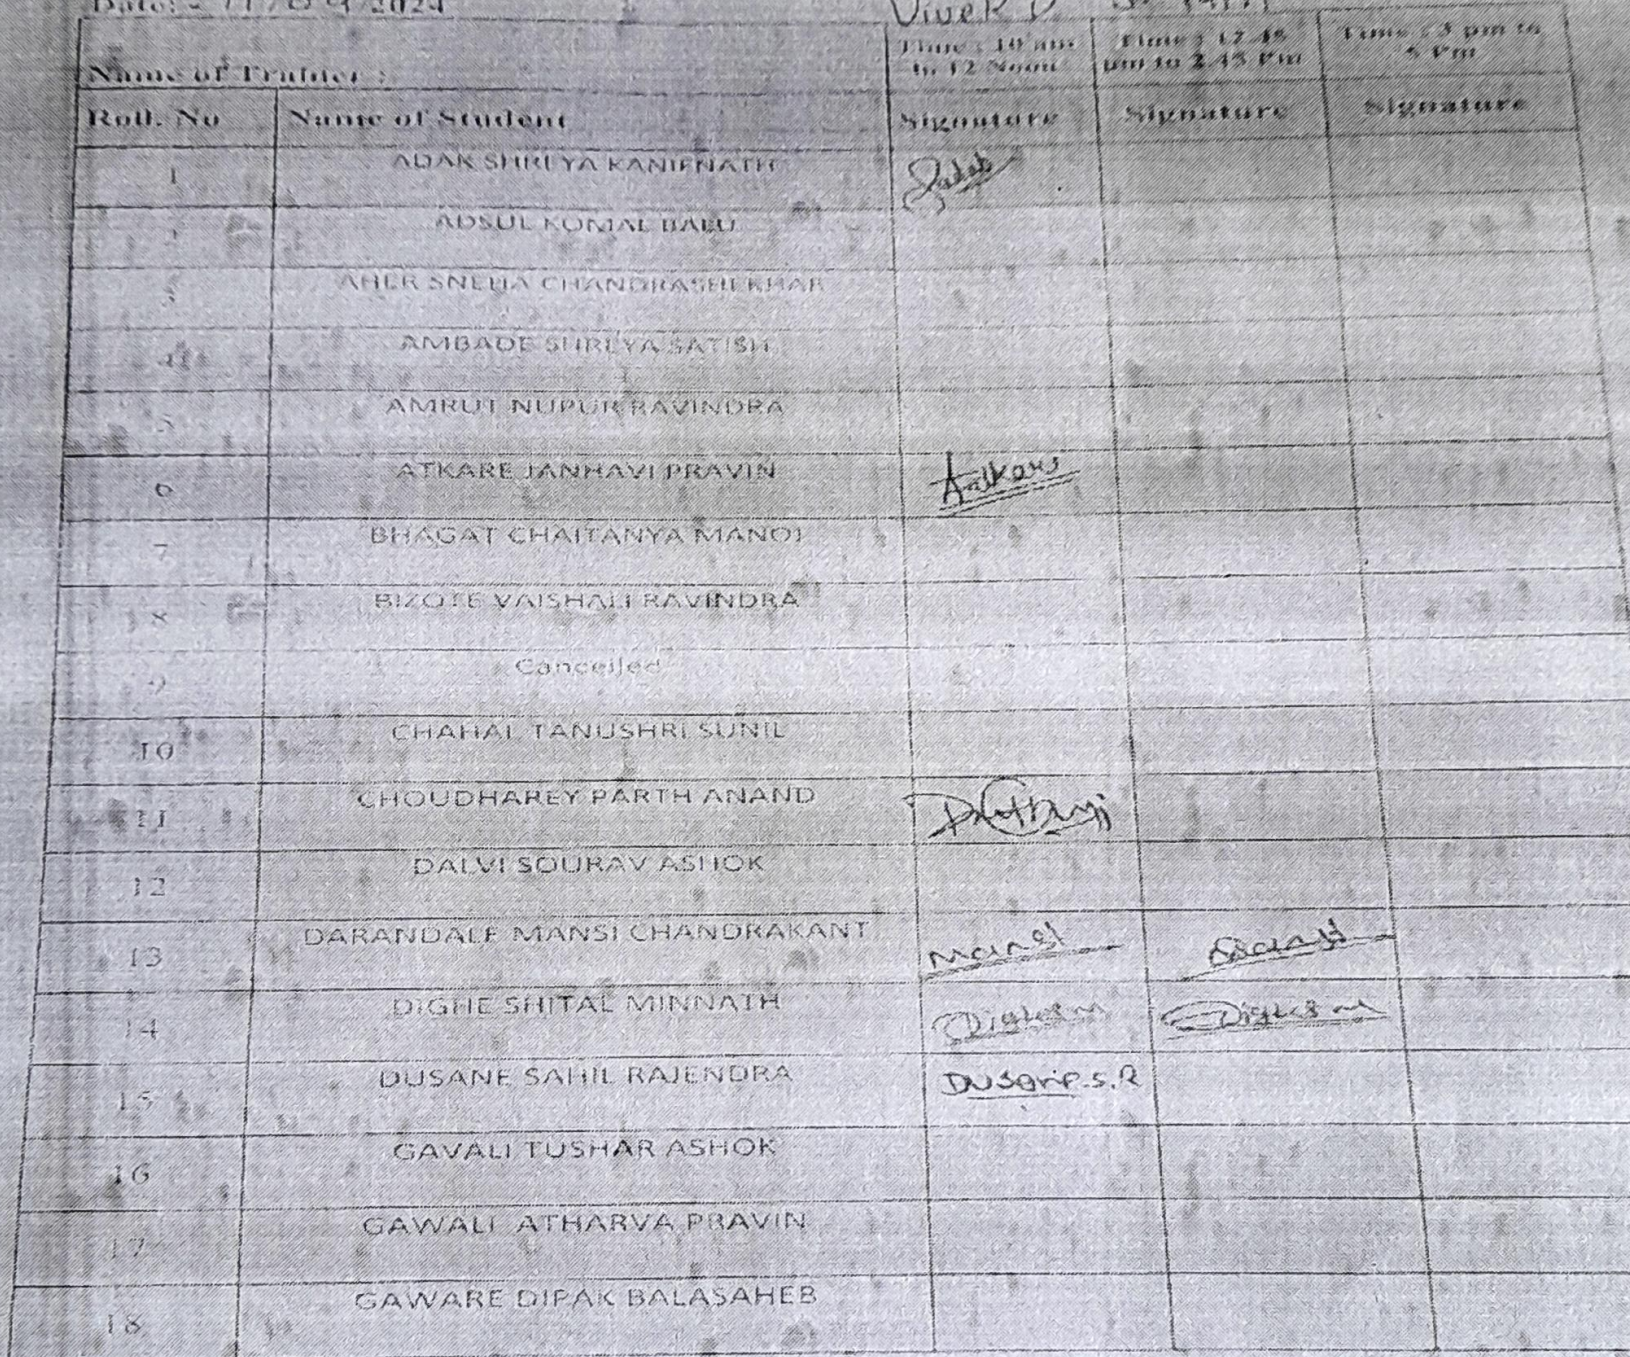 Date: - 11/09/2024
Vivek D
Name of Trainer :
Time : 10 am to 12 Noon
Time : 12.45 pm to 2.45 Pm
Time : 3 pm to 5 Pm
Roll. No Name of Student Signature Signature Signature
1 ADAK SHREYA KANIFNATH
2 ADSUL KOMAL BABU
3 AHER SNEHA CHANDRASHEKHAR
4 AMBADE SHREYA SATISH
5 AMRUT NUPUR RAVINDRA
6 ATKARE JANHAVI PRAVIN Atkare
7 BHAGAT CHAITANYA MANOJ
8 BIZOTE VAISHALI RAVINDRA
9 Cancelled
10 CHAHAL TANUSHRI SUNIL
11 CHOUDHAREY PARTH ANAND
12 DALVI SOURAV ASHOK
13 DARANDALE MANSI CHANDRAKANT Mansi
14 DIGHE SHITAL MINNATH Dighe sm Dighe sm
15 DUSANE SAHIL RAJENDRA Dusane.S.R
16 GAVALI TUSHAR ASHOK
17 GAWALI ATHARVA PRAVIN
18 GAWARE DIPAK BALASAHEB